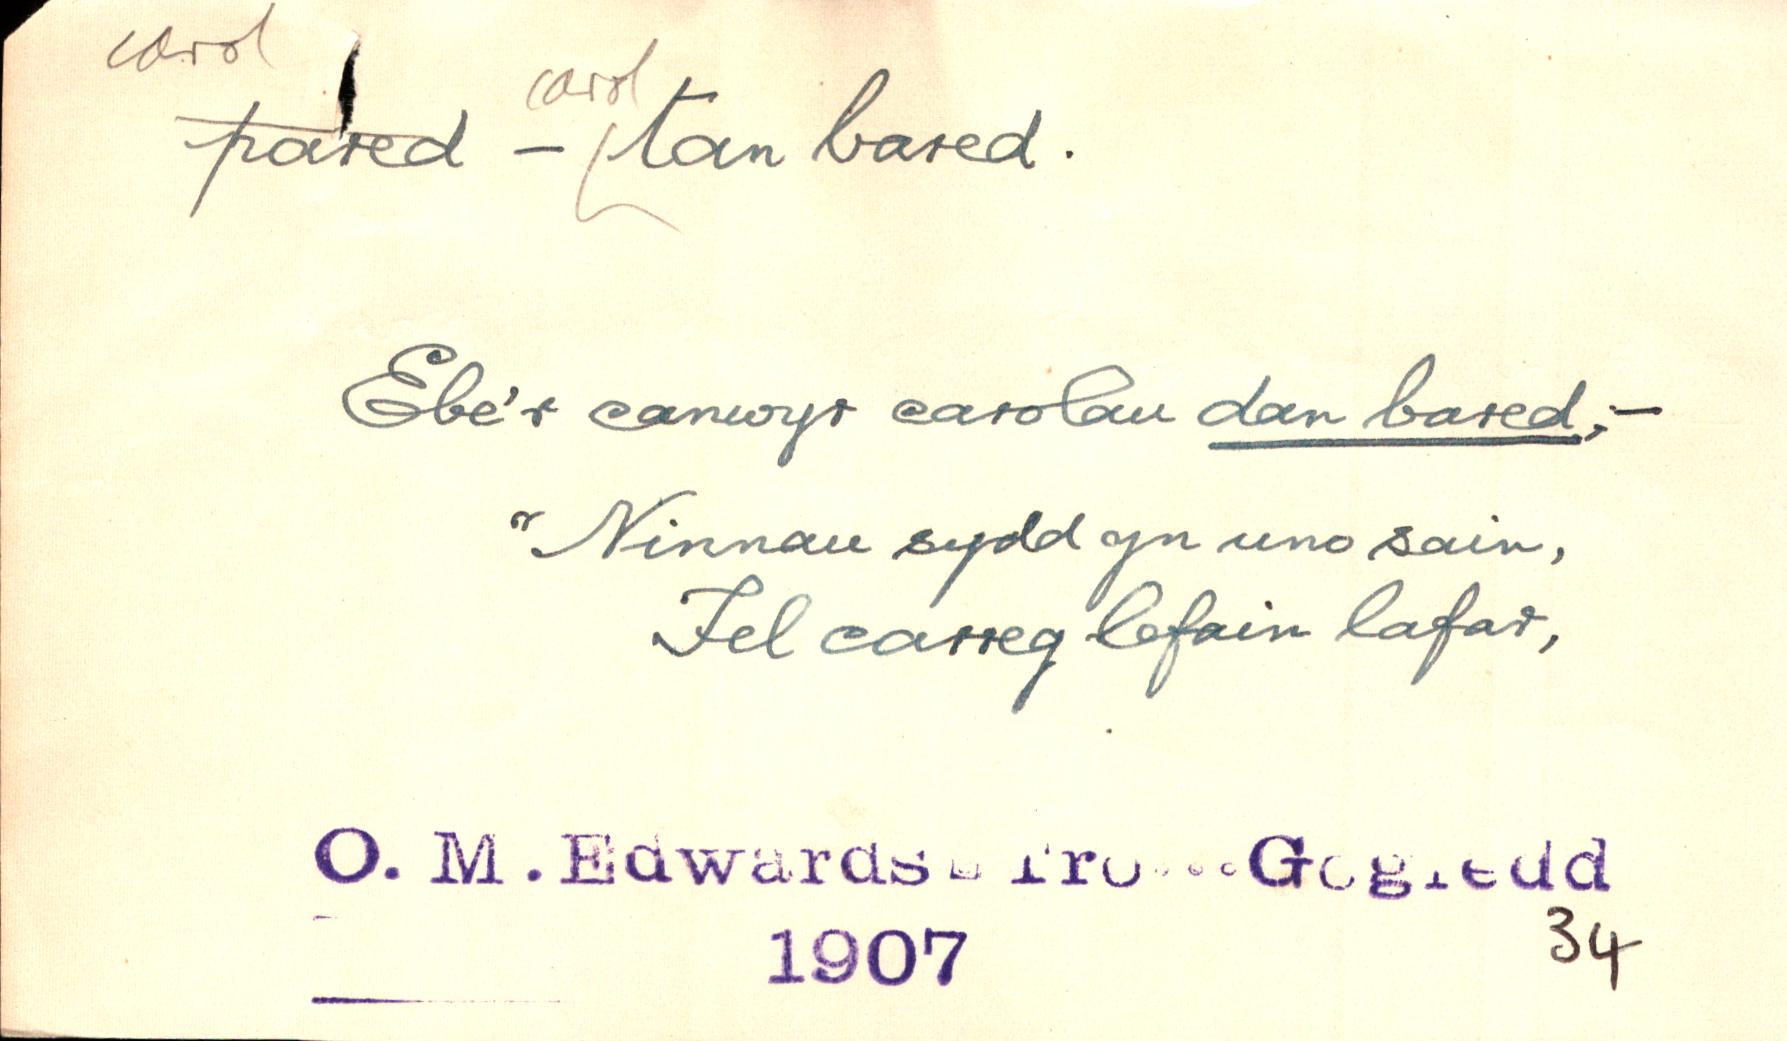 carol
carol
pared – tan bared.
Ebe'r canwyr carolau dan bared,;–
"Ninnau sydd yn uno sain,
Fel carreg lefain lafar,
O. M. Edwards Tro Gogledd
34
1907